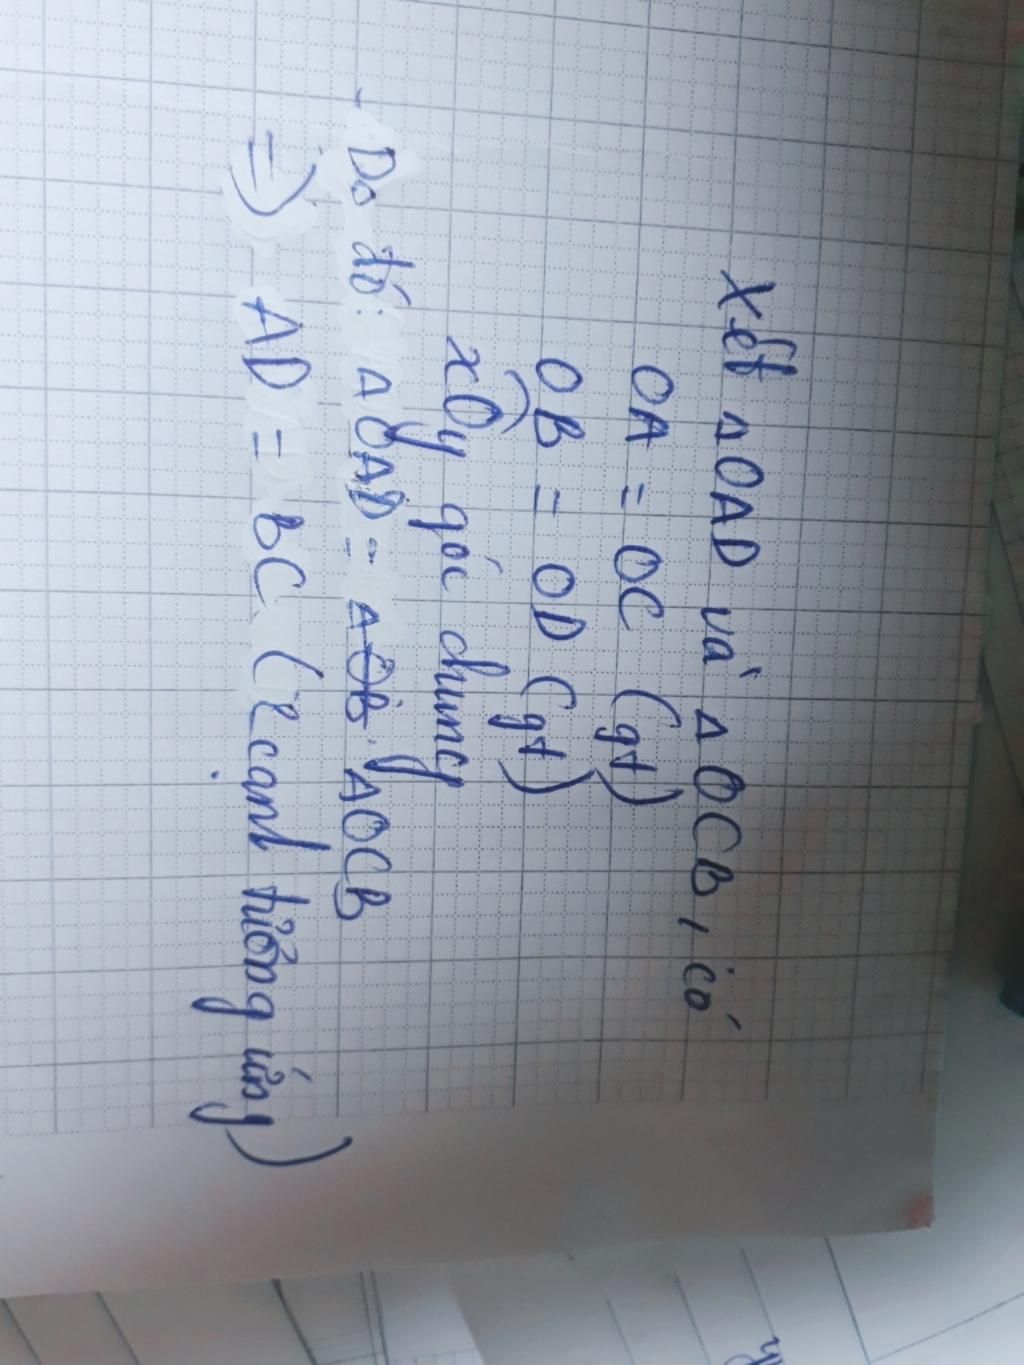 Xét ΔOAD và ΔOCB, có
OA = OC (gt)
OB = OD (gt)
xOy góc chung
- Do đó: ΔOAD = ΔOB. ΔOCB
=> AD = BC (2 cạnh tương ứng)